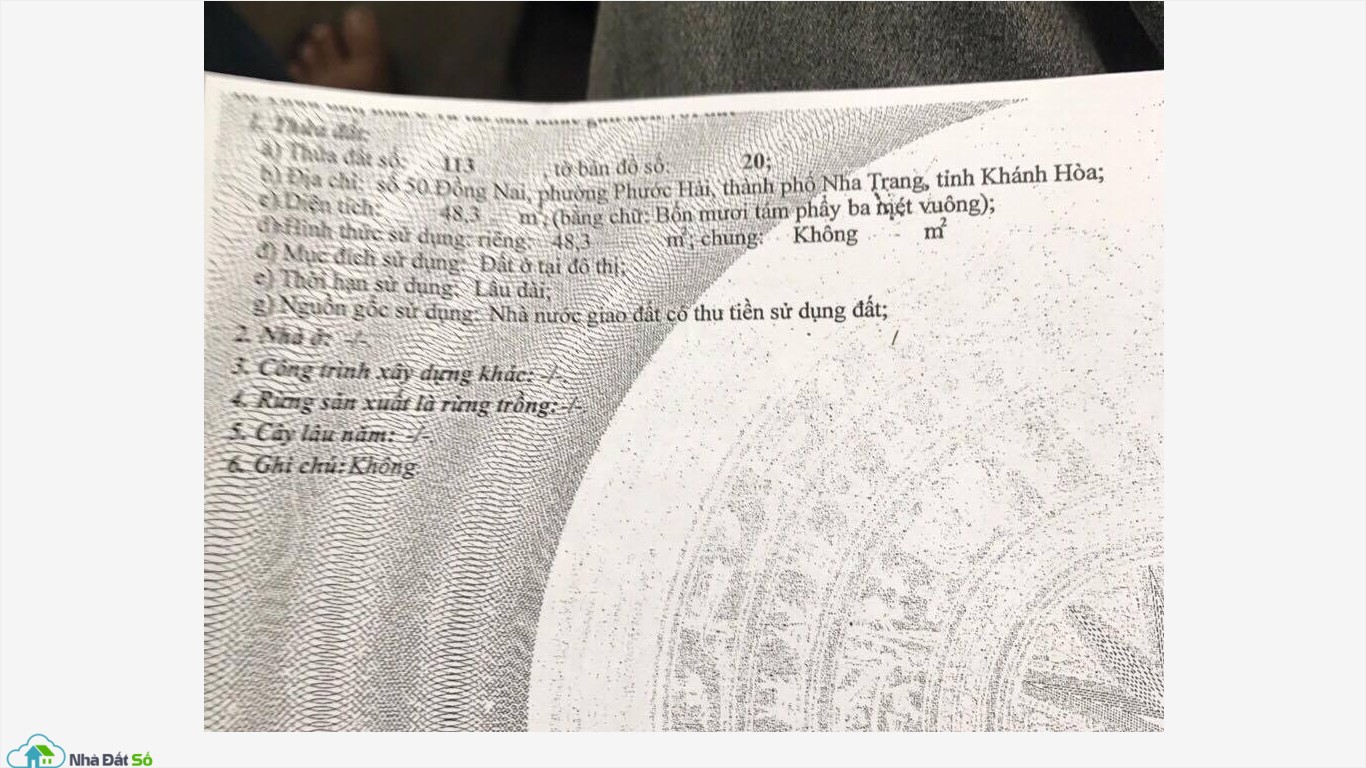 1. Thửa đất:
a) Thửa đất số: 113 , tờ bản đồ số: 20;
b) Địa chỉ: số 50 Đồng Nai, phường Phước Hải, thành phố Nha Trang, tỉnh Khánh Hòa;
c) Diện tích: 48,3 m², (bằng chữ: Bốn mươi tám phẩy ba mét vuông);
d) Hình thức sử dụng: riêng: 48,3 m²; chung: Không - m²
đ) Mục đích sử dụng: Đất ở tại đô thị;
e) Thời hạn sử dụng: Lâu dài;
g) Nguồn gốc sử dụng: Nhà nước giao đất có thu tiền sử dụng đất;
2. Nhà ở: -/-
3. Công trình xây dựng khác: -/-
4. Rừng sản xuất là rừng trồng: -/-
5. Cây lâu năm: -/-
6. Ghi chú: Không
Nhà Đất Số